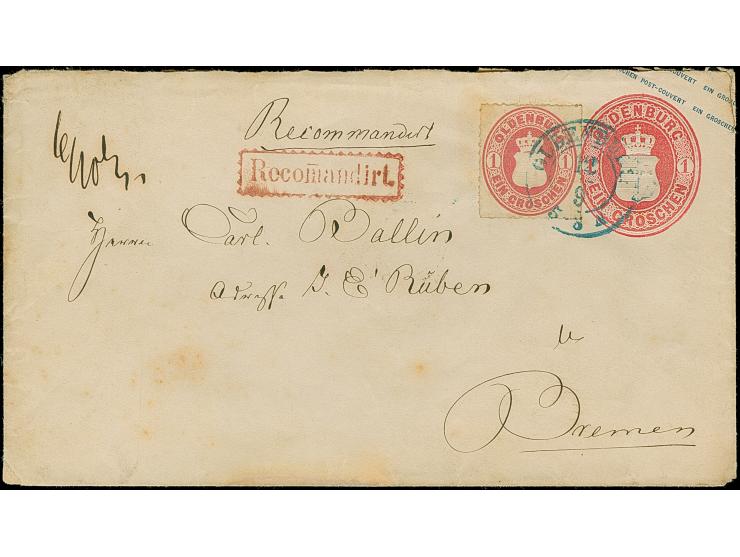 COUVERT EIN GROSCHEN
GROSCHEN POST-COUVERT EIN GROSCHEN
Recommandirt
Recomandirt.
OLDENBURG
1 1
EIN GROSCHEN
OLDENBURG
1
EIN GROSCHEN
Herrn Carl. Ballin
Adresse J. E. Rüben
Bremen